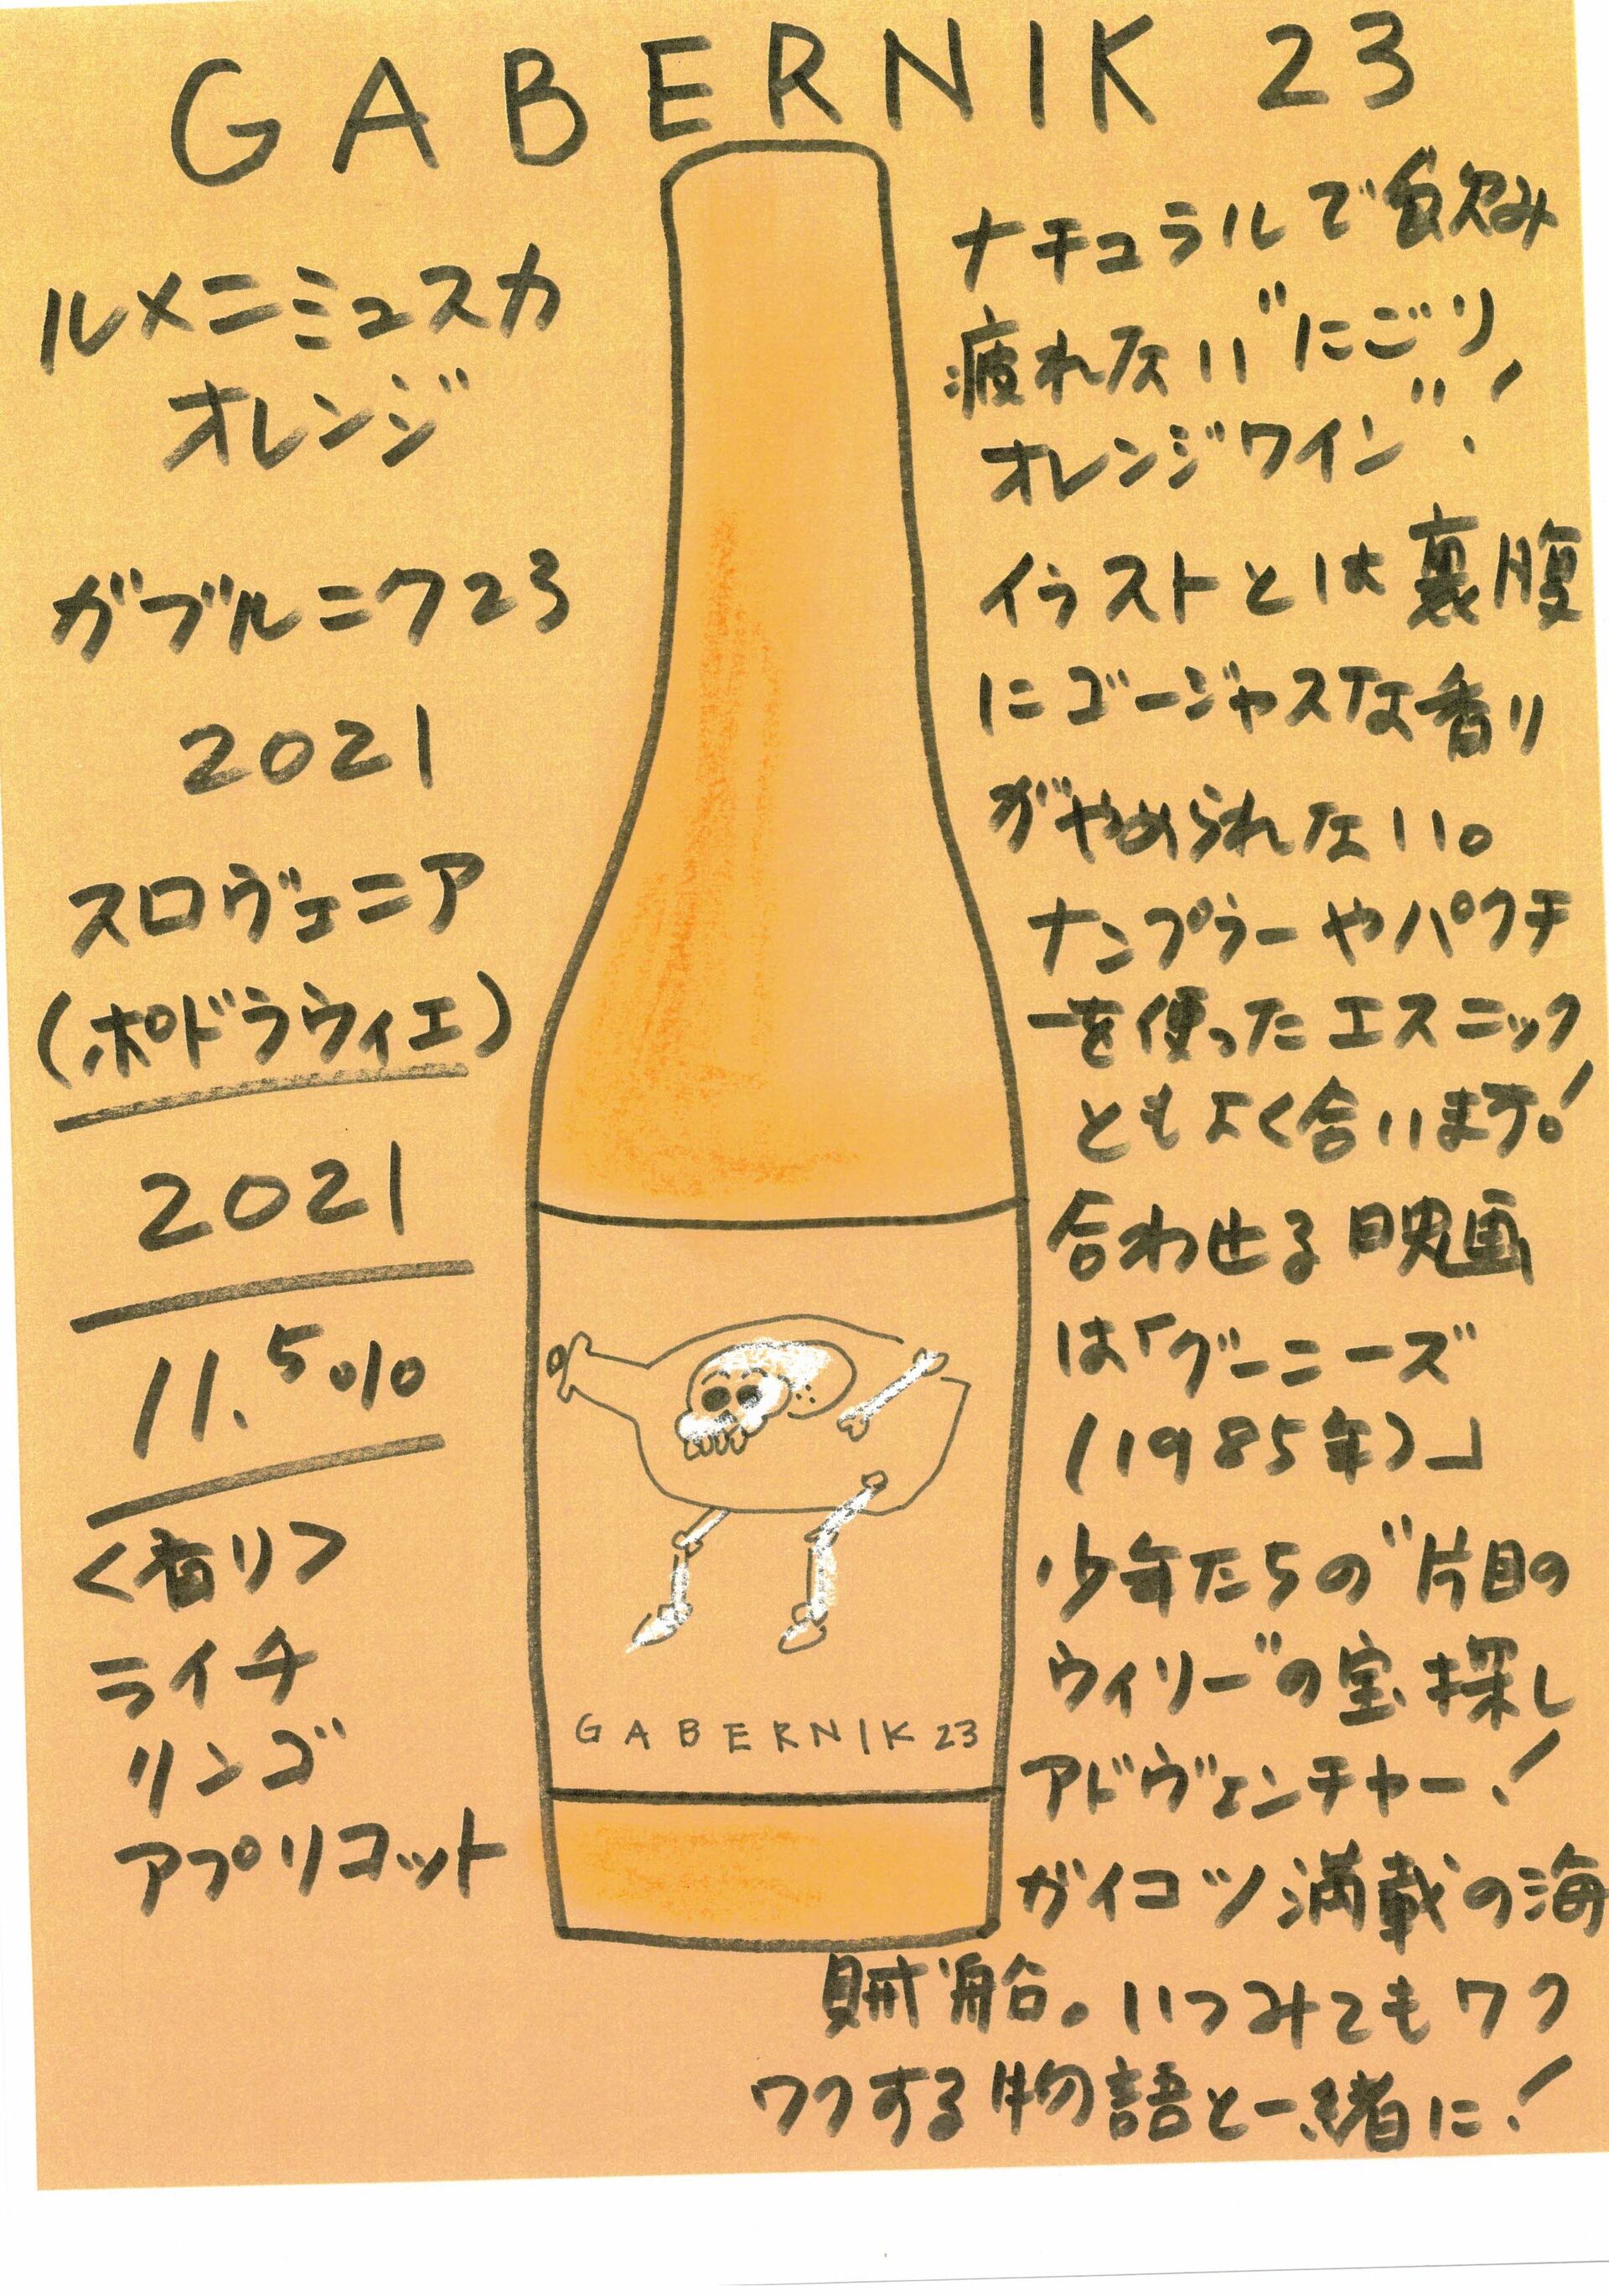 GABERNIK 23
ルメニミュスカ
オレンジ
ガブルニク23
2021
スロヴェニア
(ポドラウィエ)
2021
11.5%
<香り>
ライチ
リンゴ
アプリコット
ナチュラルで飲み
疲れない"にごり
オレンジワイン"!
イラストとは裏腹
にゴージャスな香り
がやめられない。
ナンプラーやパクチ
ーを使ったエスニック
ともよく合います!
合わせる映画
は「グーニーズ
(1985年)」
少年たちの"片目の
ウィリー"の宝探し
アドヴェンチャー!
ガイコツ満載の海
賊船。いつみてもワク
ワクする物語と一緒に!
GABERNIK 23